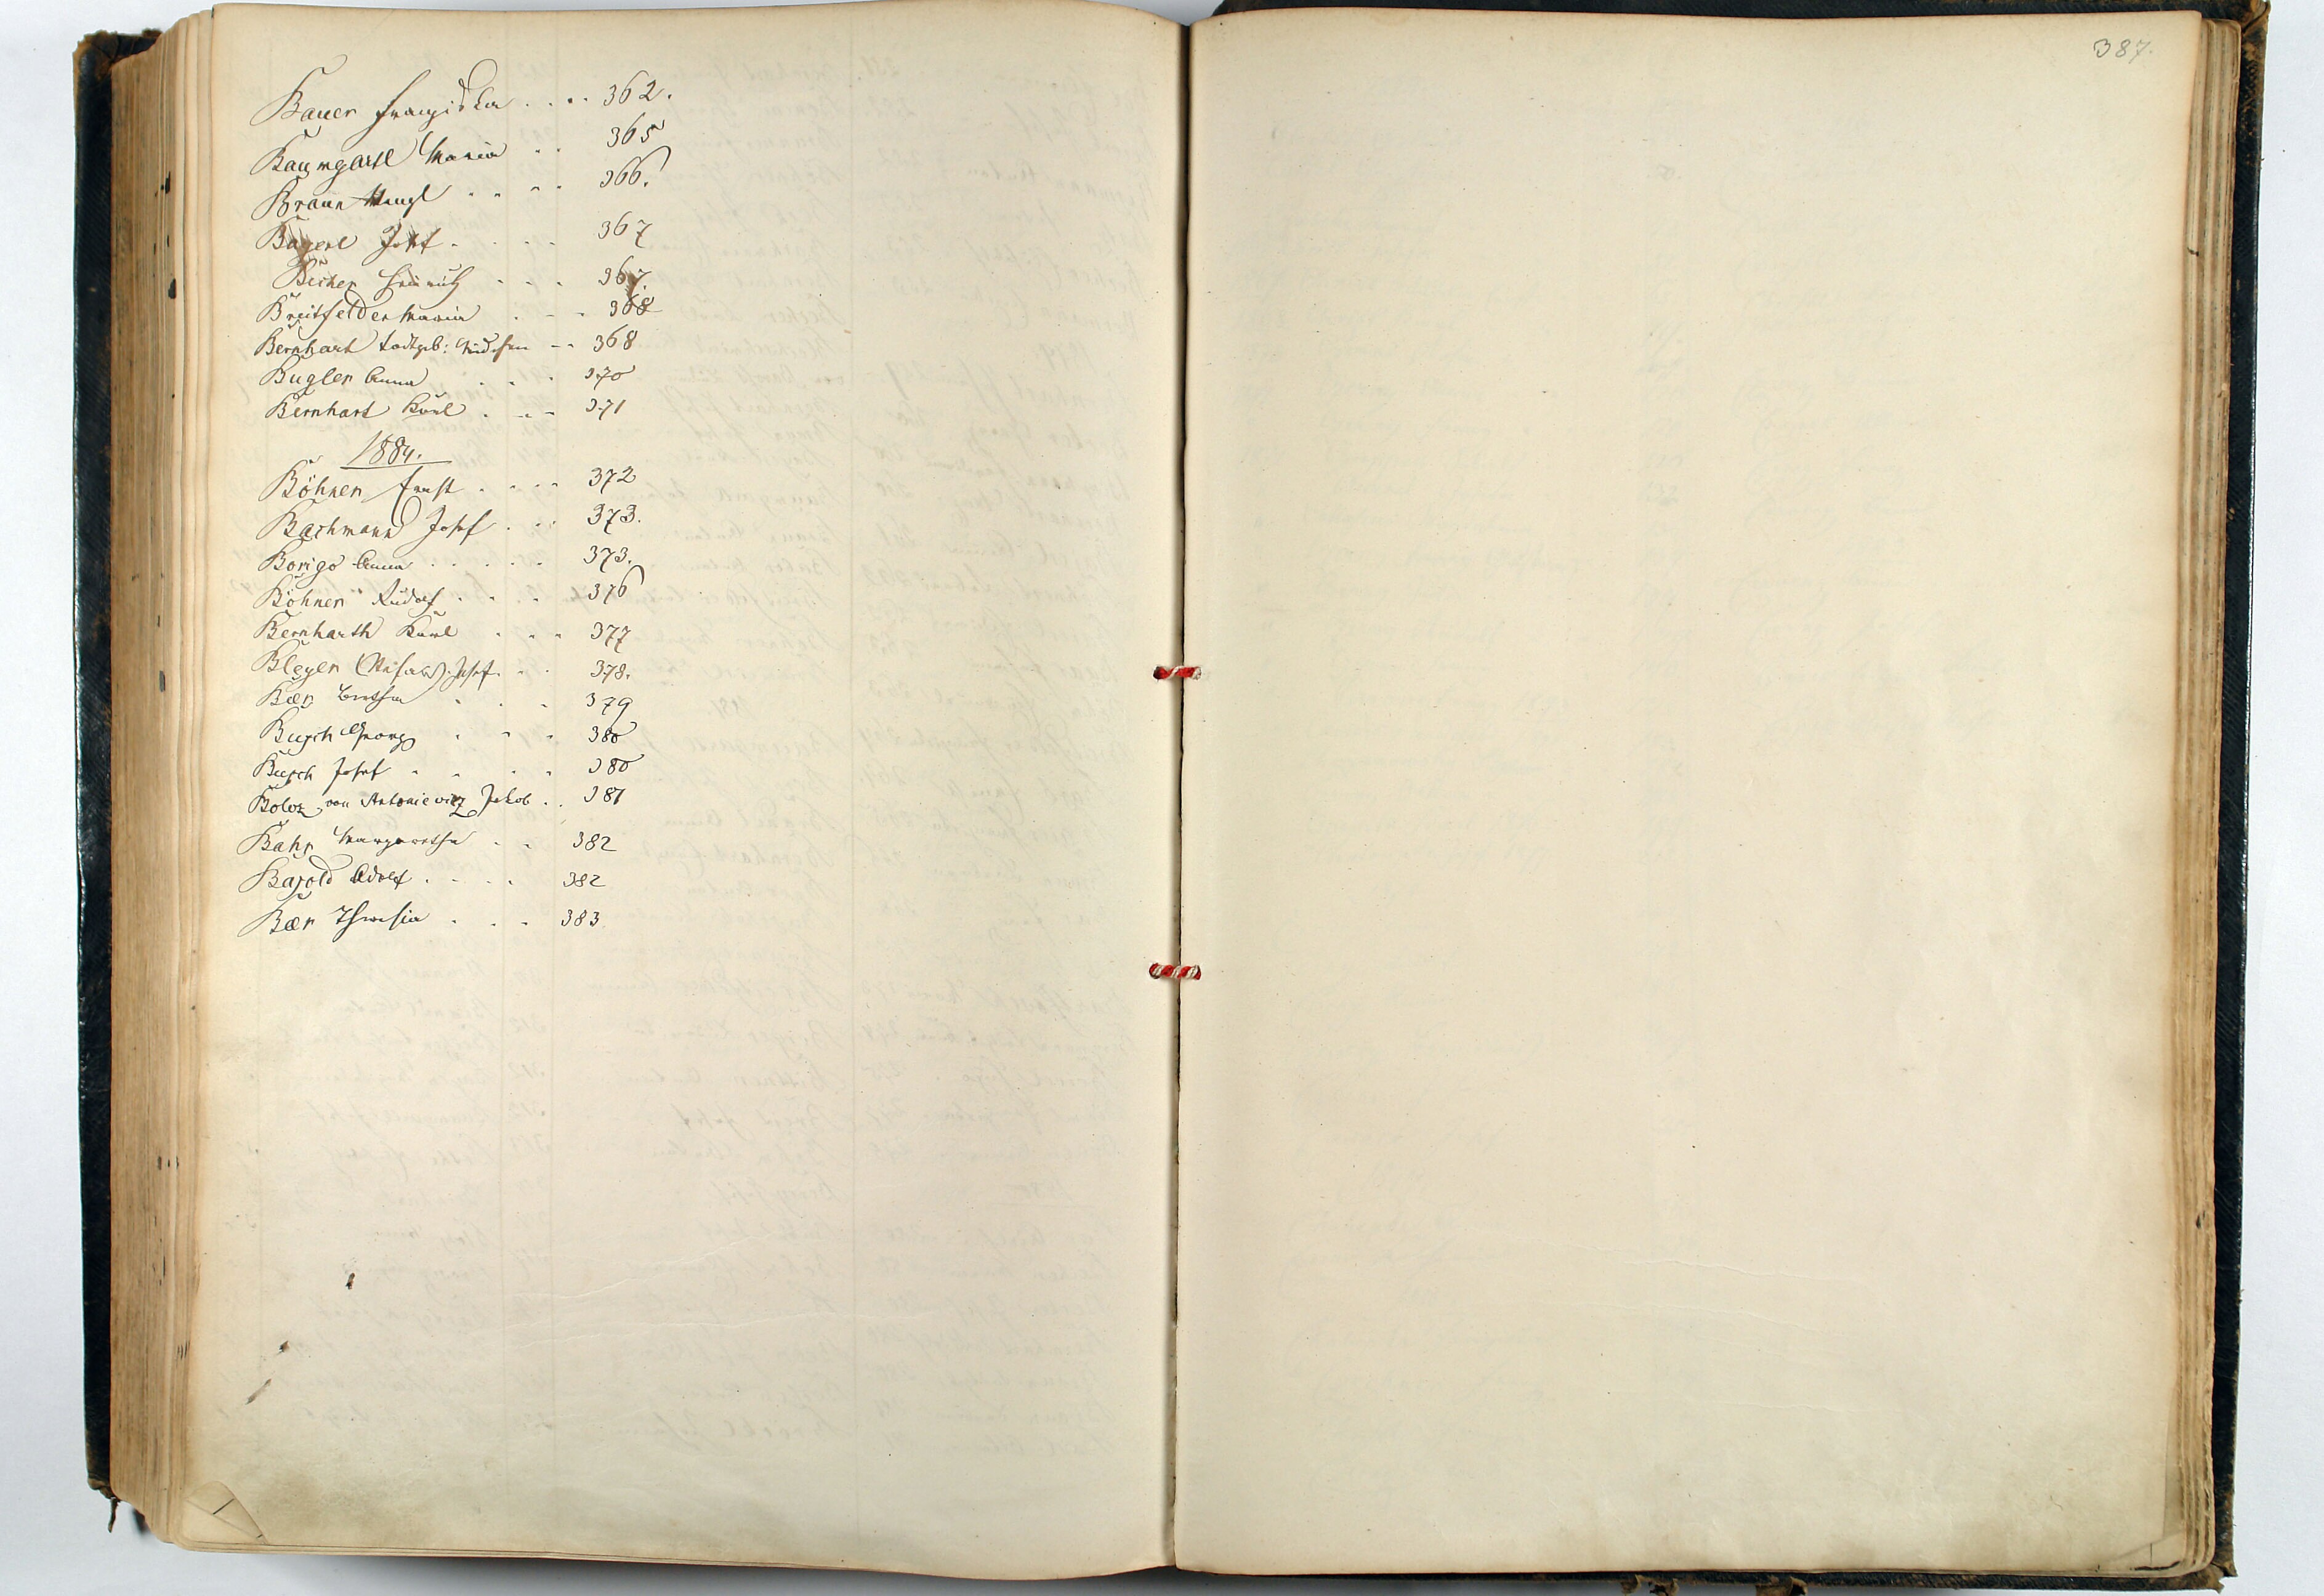 Bauer Franziska . . . . 362.
Baumgartl Maria . . 365
Braun Wenzl . . . . 366.
Bayerl Josef . . . . 367
Becher Heinrich . . . 367.
Breitfelder Maria . . . 368
Bernhart todtgeb: Mädchen . . 368
Bugler Anna . . . 370
Bernhart Karl . . . 371
1884.
Böhner Ernst . . . . 372
Bachmann Josef . . . 373.
Borigo Anna . . . . . 373.
Böhner Rudolf . . . . 376
Bernharth Karl . . . 377
Bleyer Josef . . . 378.
Bær Bertha . . . 379
Busch Georg . . . 380
Busch Josef . . . . 380
Boloz von Antoniewicz Jakob . . 381
Bahr Margaretha . . 382
Barold Adolf . . . . 382
Bær Theresia . . . 383
387.